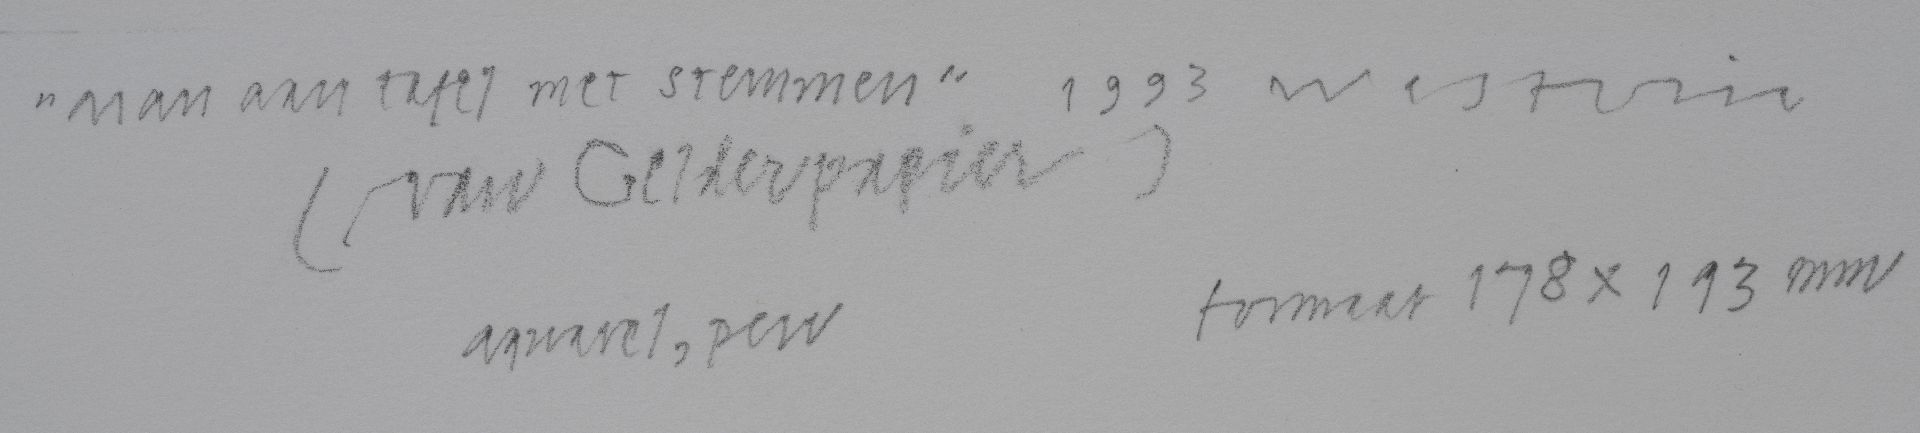 "Man aan tafel met stemmen" 1993 Westerik
(van Gelderpapier)
aquarel, pen formaat 178 x 193 mm